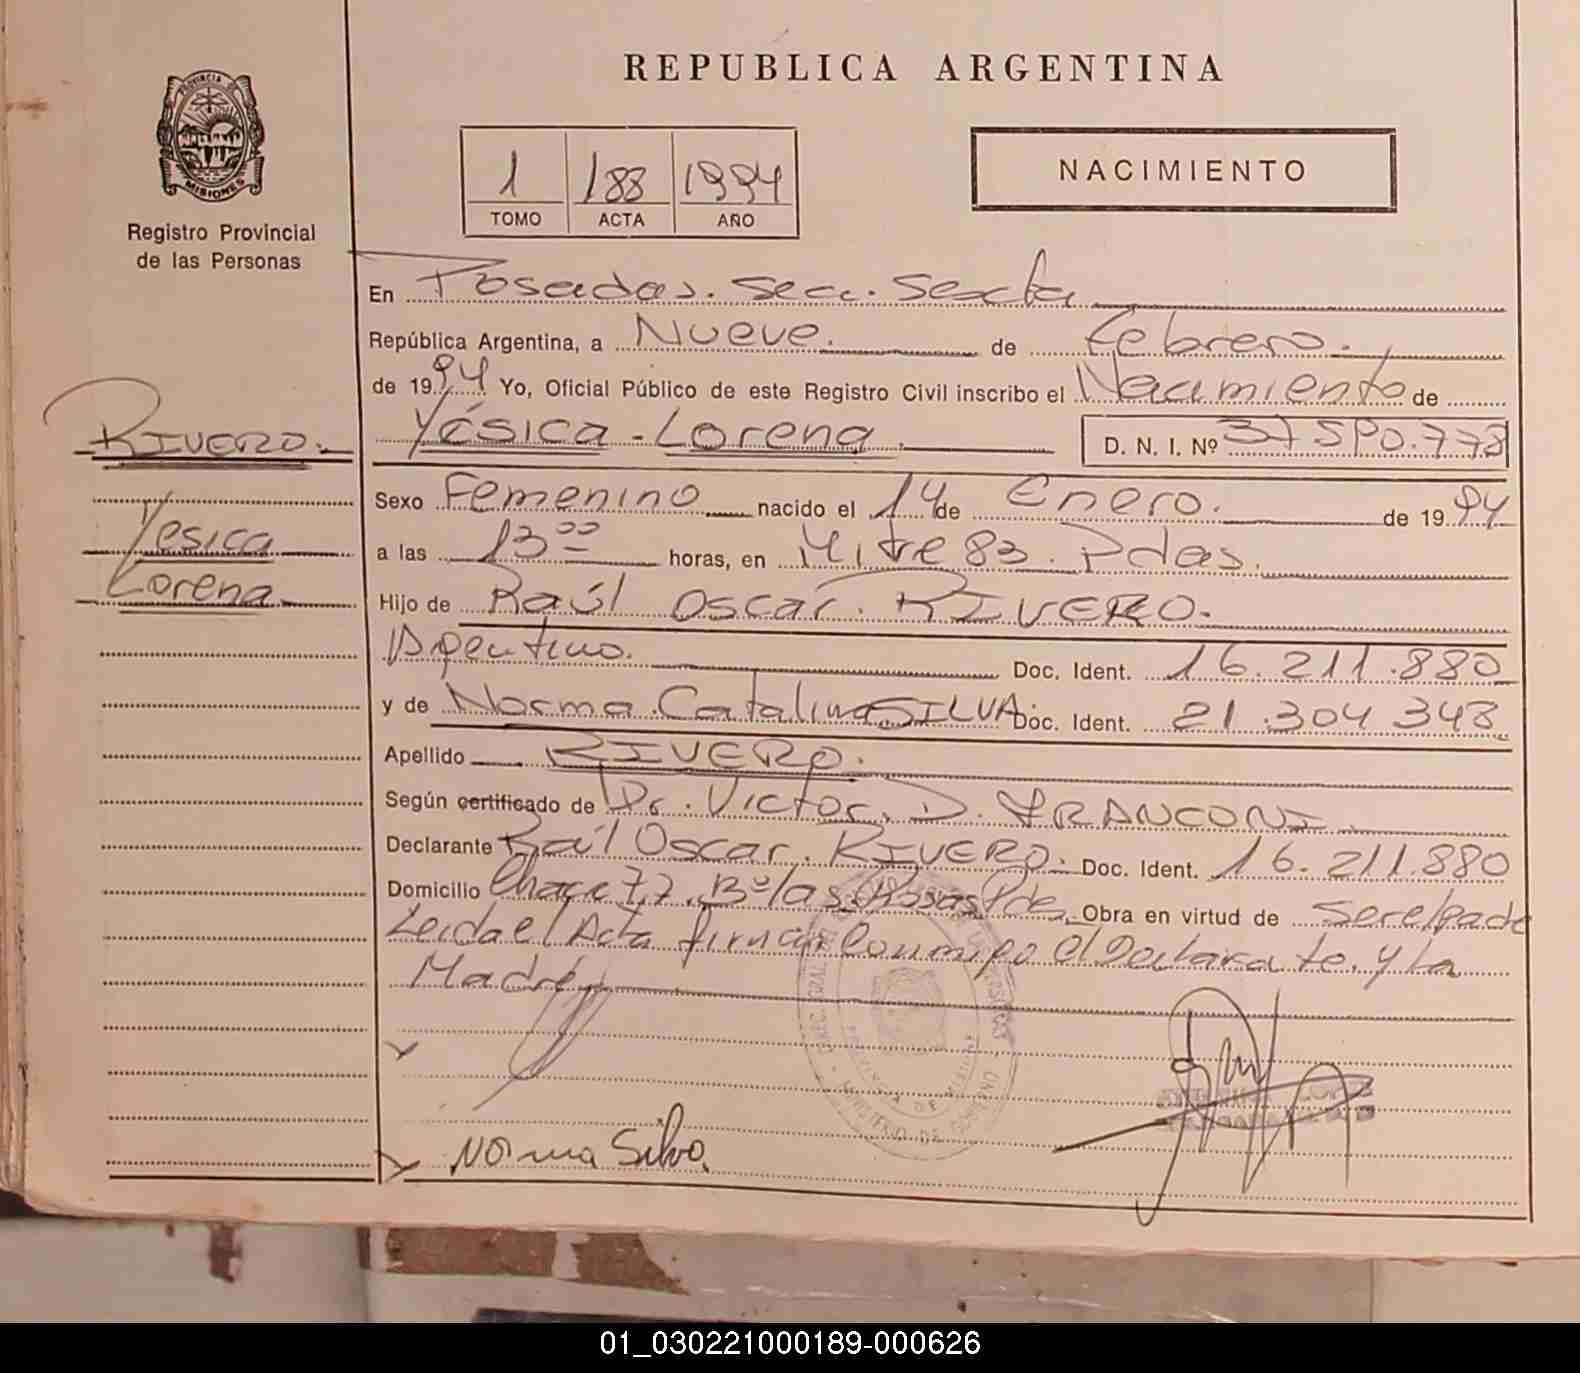 REPUBLICA ARGENTINA
PROVINCIA DE
MISIONES
Registro Provincial
de las Personas
1 188 1994
TOMO ACTA AÑO
NACIMIENTO
En Posadas. Secc. Sexta
República Argentina, a Nueve. de Febrero.
de 1994 Yo, Oficial Público de este Registro Civil inscribo el Nacimiento de
Yésica - Lorena. D. N. I. Nº
RIVERO.
Yesica
Lorena
Sexo Femenino nacido el 14 de Enero. de 1994
a las 13 00 horas, en Mitre 83. Pdas.
Hijo de Raúl Oscar. RIVERO.
Argentino. Doc. Ident. 16.211.880
y de Norma Catalina SILVA. Doc. Ident. 21.304.343
Apellido RIVERO.
Según certificado de Dr. Victor. D. FRANCONI
Declarante Raúl Oscar. RIVERO. Doc. Ident. 16.211.880
Domicilio Chacra 77. Bº las Rosas Pdas. Obra en virtud de ser el padre
Leida el Acta firman conmigo el Declarante. y la
Madre
Norma Silva.
01_030221000189-000626